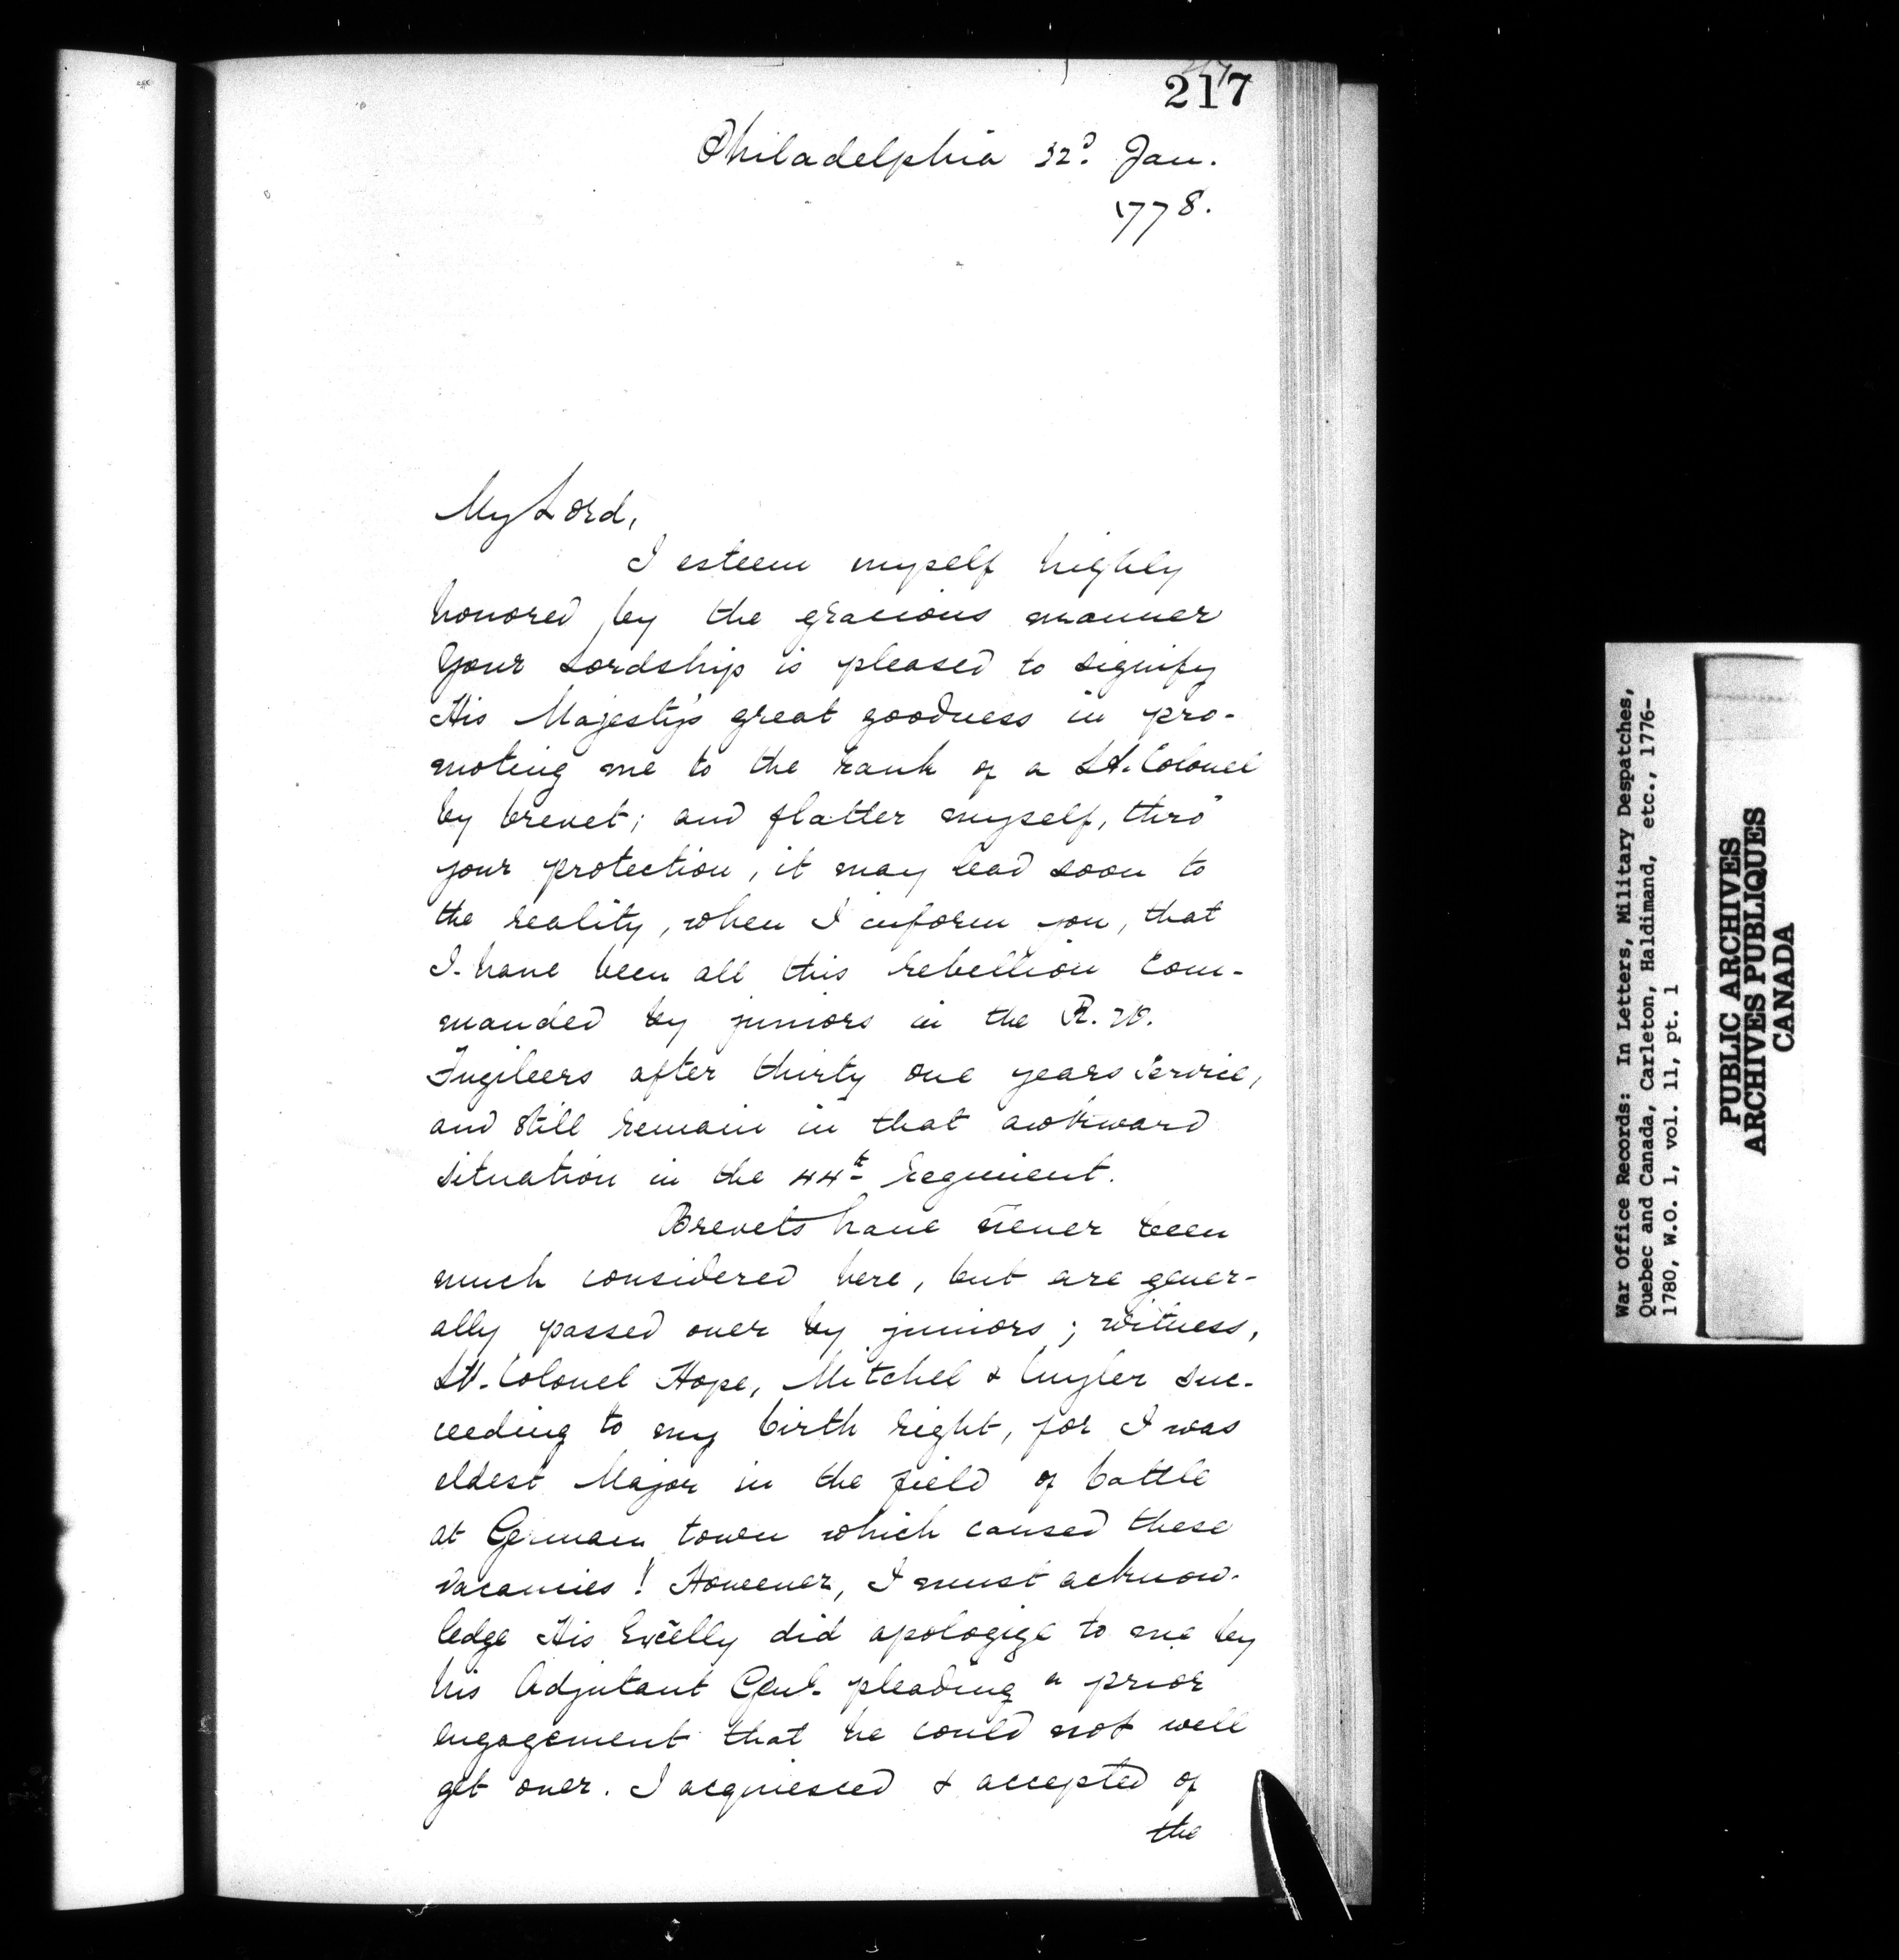 217
Philadelphia 32d. Jan.
1778.
My Lord,
I esteem myself highly
honored by the gracious manner
Your Lordship is pleased to signify
His Majesty's great goodness in pro-
moting me to the rank of a Lt. Colonel
by brevet; and flatter myself, thro'
your protection, it may lead soon to
the reality, when I inform you, that
I have been all this rebellion com-
manded by juniors in the R. W.
Fugileers after thirty one years service,
and still remain in that awkward
situation in the 44th regiment.
Brevets have never been
much considered here, but are gener-
ally passed over by juniors; witness,
Lt. Colonel Hope, Mitchel & Cuyler suc-
ceeding to my birth right, for I was
eldest Major in the field of battle
at German town which caused these
vacancies! However, I must acknow-
ledge His Excelly did apologize to me by
his Adjutant Genl. pleading a prior
engagement that he could not well
get over. I acquiesced & accepted of
the
War Office Records: In Letters, Military Despatches,
Quebec and Canada, Carleton, Haldimand, etc., 1776-
1780, W.O. 1, vol. 11, pt. 1
PUBLIC ARCHIVES
ARCHIVES PUBLIQUES
CANADA